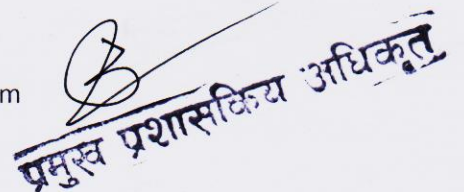 m
प्रमुख प्रशासकिय अधिकृत